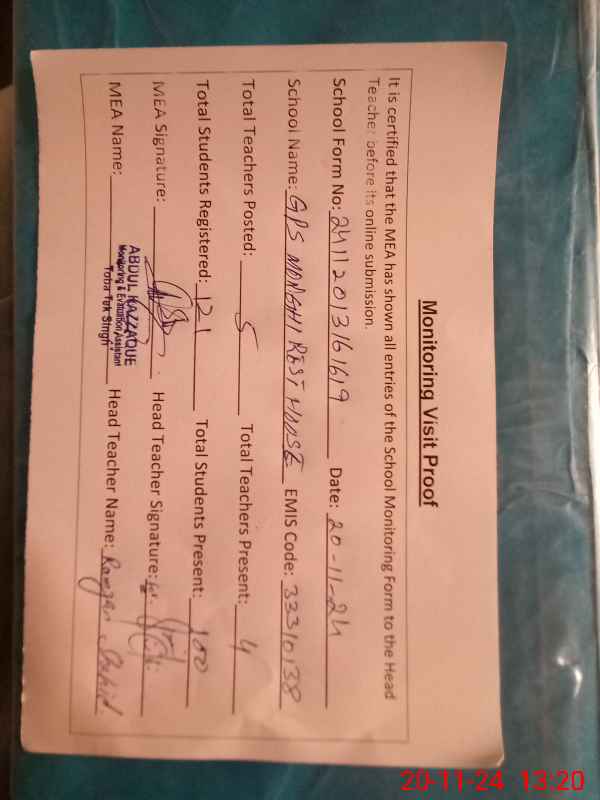 Monitoring Visit Proof
It is certified that the MEA has shown all entries of the School Monitoring Form to the Head
Teacher before its online submission.
School Form No: 24112013161619 Date: 20-11-24
School Name: GPS MONGHI REST HOUSE EMIS Code: 33310138
Total Teachers Posted: 5 Total Teachers Present: 4
Total Students Registered: 121 Total Students Present: 100
MEA Signature: Head Teacher Signature:
MEA Name: ABDUL RAZZAQUE Head Teacher Name: Ramzan Shahid
Monitoring & Evaluation Assistant
Toba Tek Singh
20-11-24 13:20